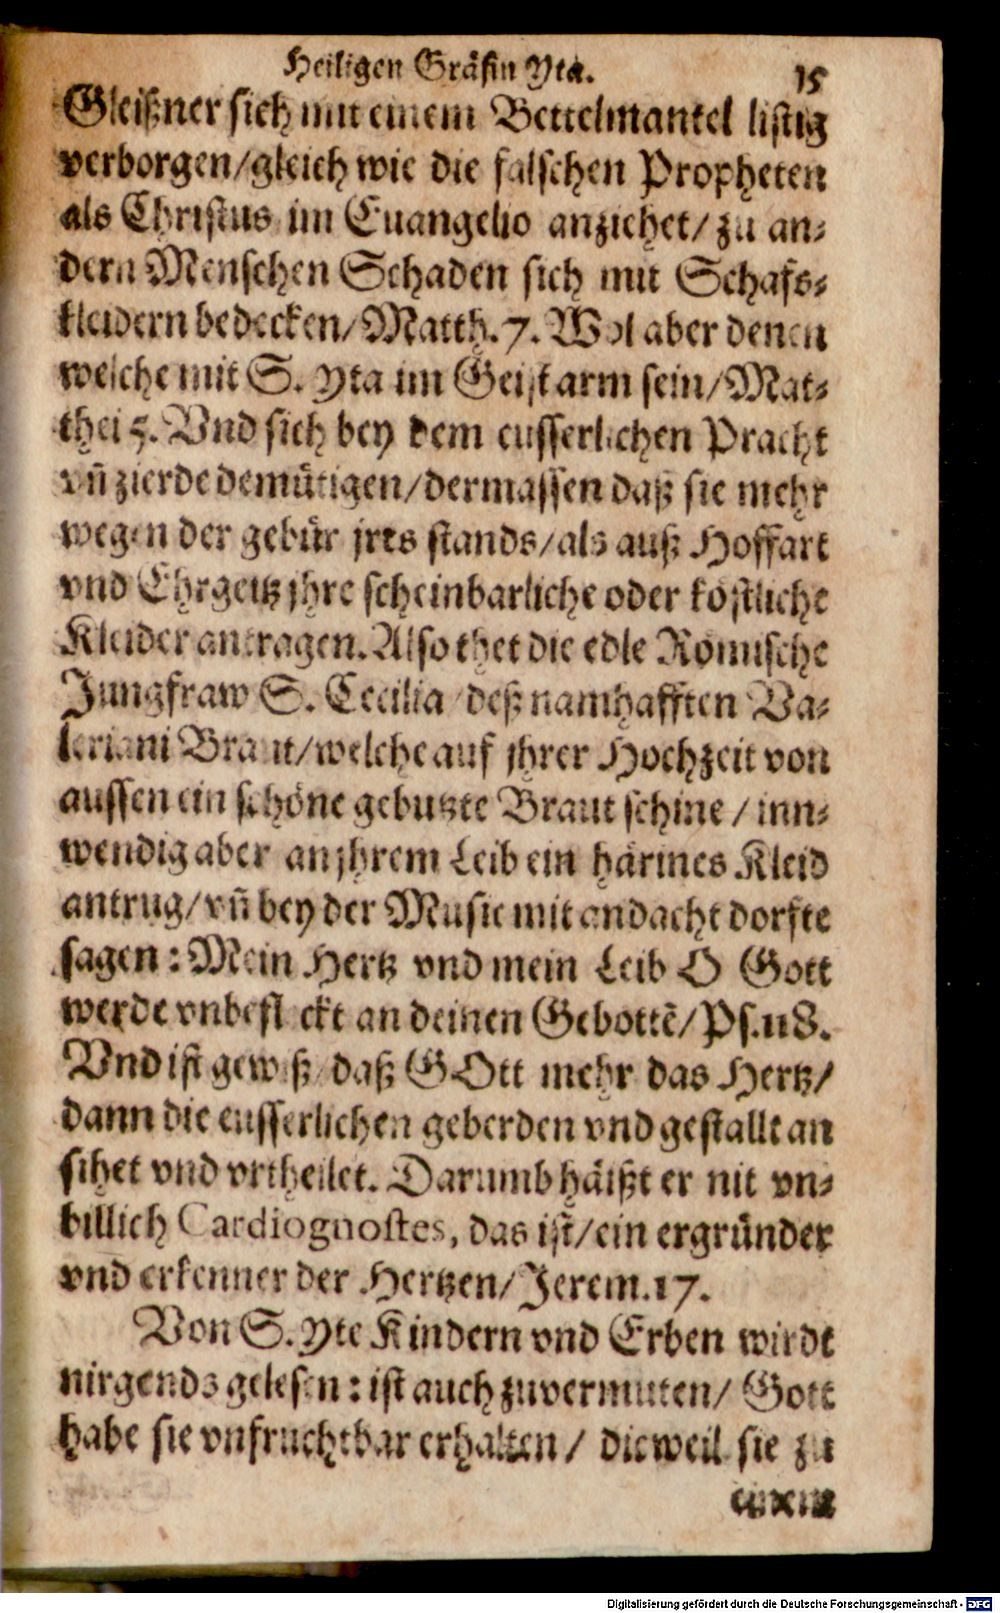 Heiligen Gräfin Yta. 15
Gleißner sich mit einem Bettelmantel listig
verborgen/gleich wie die falschen Propheten
als Christus im Euangelio anziehet/ zu an-
dern Menschen Schaden sich mit Schafs-
kleidern bedecken/Matth. 7. Wol aber denen
welche mit S. Yta im Geist arm sein/Mat-
thei 5. Vnd sich bey dem eusserlichen Pracht
vñ zierde demütigen/dermassen daß sie mehr
wegen der gebür jres stands/als auß Hoffart
vnd Ehrgeitz jhre scheinbarliche oder köstliche
Kleider antragen. Also thet die edle Römische
Jungfraw S. Cecilia/deß namhafften Va-
leriani Braut/welche auf jhrer Hochzeit von
aussen ein schöne gebutzte Braut schine / inn-
wendig aber an jhrem Leib ein härines Kleid
antrug/vñ bey der Music mit andacht dorfte
sagen: Mein Hertz vnd mein Leib O Gott
werde vnbefleckt an deinen Gebottẽ/Ps.118.
Vnd ist gewiß/daß GOtt mehr das Hertz/
dann die eusserlichen geberden vnd gestallt an
sihet vnd vrtheilet. Darumb häißt er nit vn-
billich Cardiognostes, das ist/ein ergründer
vnd erkenner der Hertzen/Jerem.17.
Von S. Yte Kindern vnd Erben wirdt
nirgends gelesen: ist auch zuvermuten/ Gott
habe sie vnfruchtbar erhalten / dieweil sie zu
einem
Digitalisierung gefördert durch die Deutsche Forschungsgemeinschaft - DFG